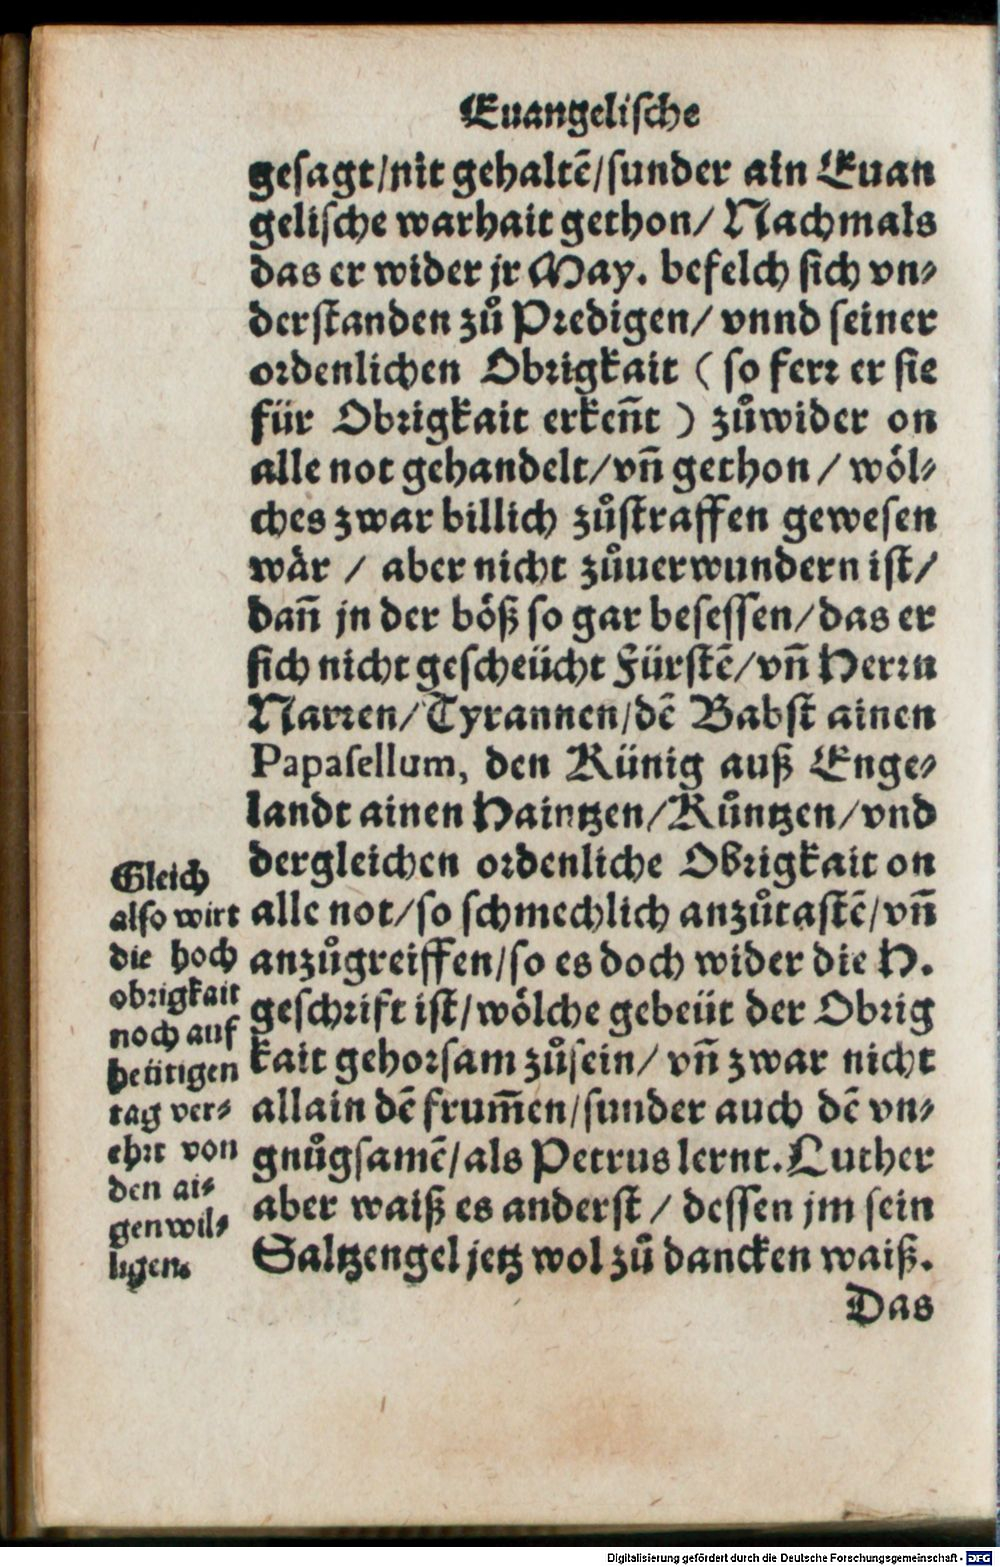 Euangelische
gesagt/nit gehaltẽ/sunder ain Euan
gelische warhait gethon/ Nachmals
das er wider jr May. befelch sich vn⸗
derstanden zů Predigen/ vnnd seiner
ordenlichen Obrigkait ( so ferr er sie
für Obrigkait erkeñt ) zůwider on
alle not gehandelt/vñ gethon / wöl⸗
ches zwar billich zůstraffen gewesen
wär / aber nicht zůuerwundern ist/
dañ jn der böß so gar besessen/das er
sich nicht gescheücht Fürstẽ/vñ Herrn
Narren/Tyrannen/dẽ Babst ainen
Papasellum, den Künig auß Enge⸗
landt ainen Haintzen/Kůntzen/vnd
dergleichen ordenliche Obrigkait on
alle not/so schmechlich anzůtastẽ/vñ
anzůgreiffen/so es doch wider die H.
geschrift ist/wölche gebeüt der Obrig
kait gehorsam zůsein/ vñ zwar nicht
allain dẽ frum̃en/sunder auch dẽ vn⸗
gnůgsamẽ/als Petrus lernt. Luther
aber waiß es anderst / dessen jm sein
Saltzengel jetz wol zů dancken waiß.
Das
Gleich
also wirt
die hoch
obrigkait
noch auf
heütigen
tag ver⸗
ehrt von
den ai⸗
genwil⸗
ligen.
Digitalisierung gefördert durch die Deutsche Forschungsgemeinschaft - DFG